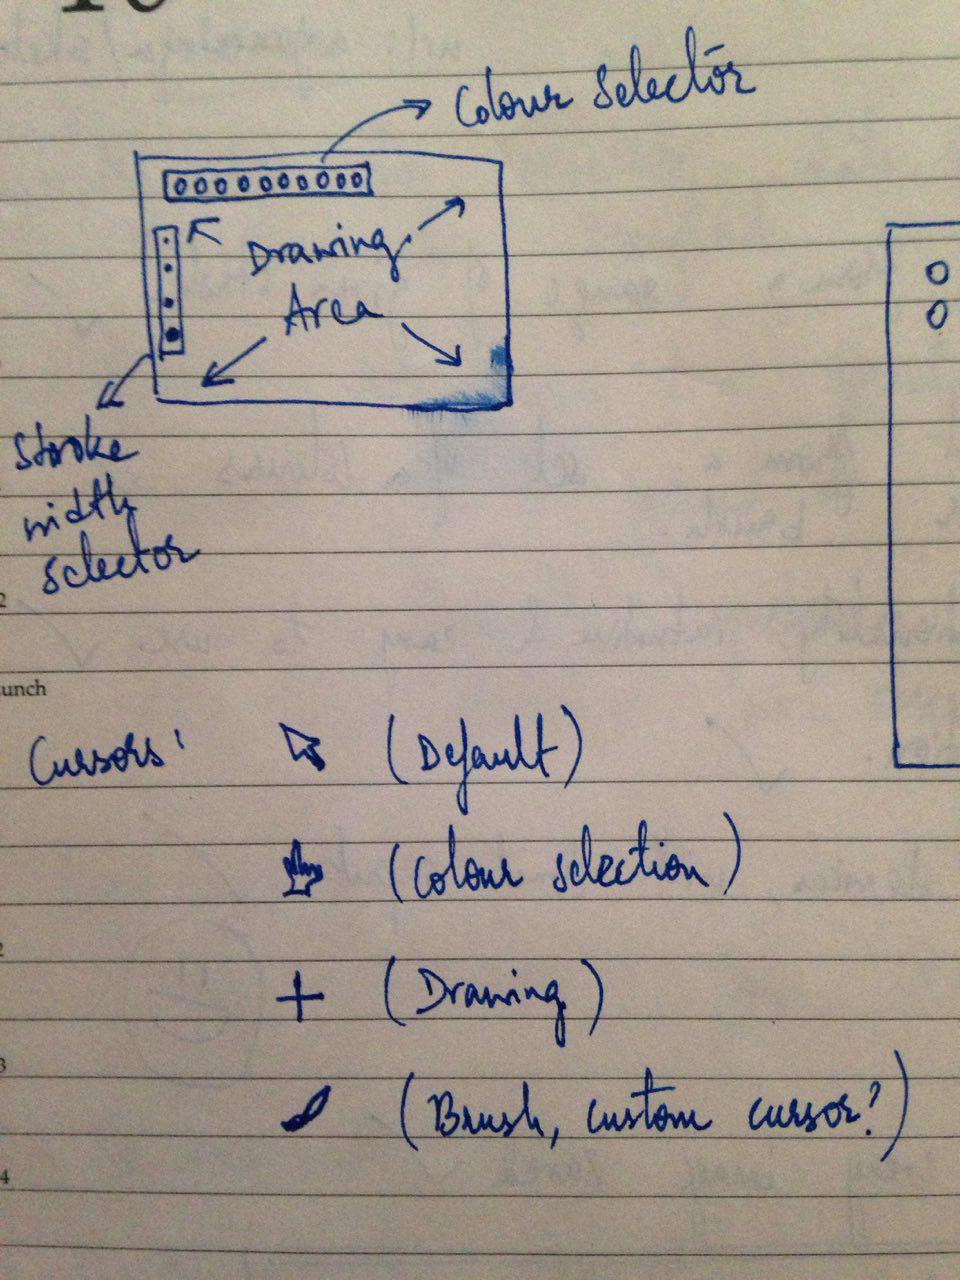 Colour Selector
Drawing
Area
Stroke
width
selector
unch
Cursors:
(Default)
(Colour selection)
(Drawing)
3
(Brush, custom cursor?)
4